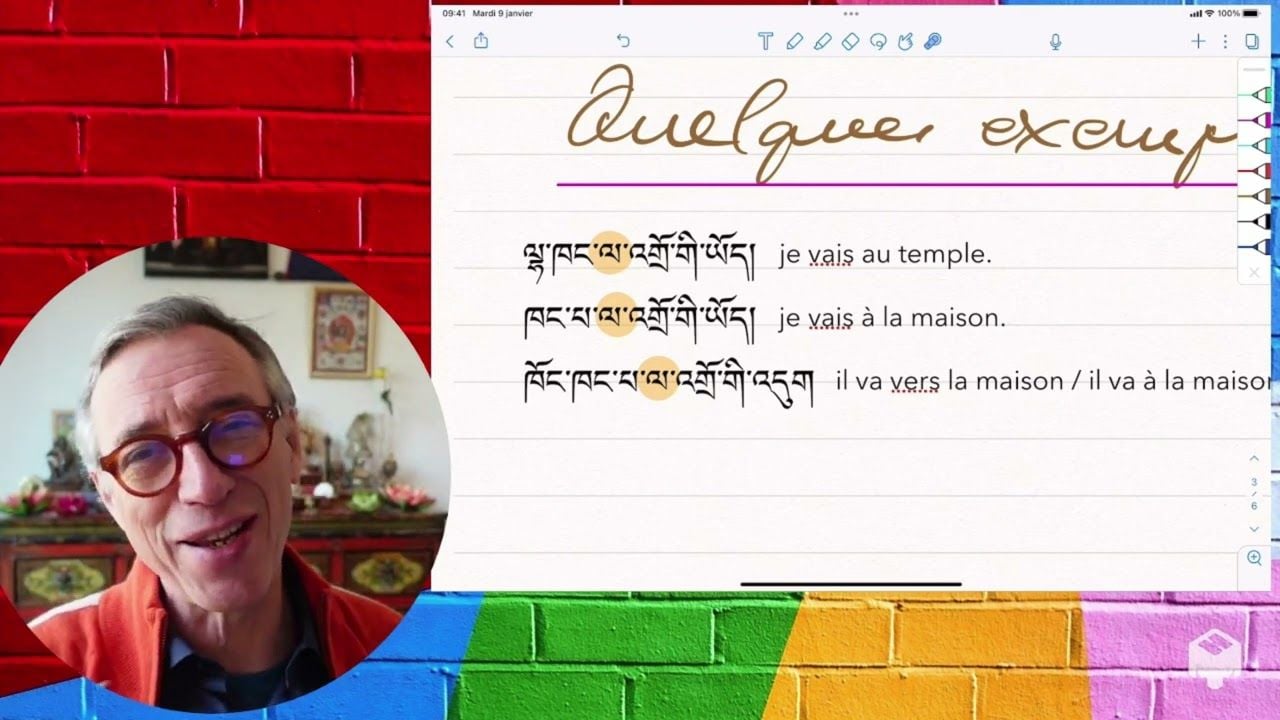 09:41 Mardi 9 janvier
100%
Quelques exemp
ལྷ་ཁང་ལ་འགྲོ་གི་ཡོད། je vais au temple.
ཁང་པ་ལ་འགྲོ་གི་ཡོད། je vais à la maison.
ཁོང་ཁང་པ་ལ་འགྲོ་གི་འདུག il va vers la maison / il va à la maison
3
6